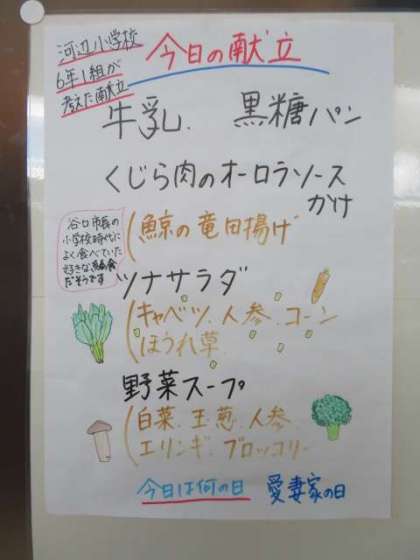 河辺小学校
6年1組が
考えた献立
今日の献立
牛乳. 黒糖パン
くじら肉のオーロラソース
かけ
谷口市長の
小学校時代に
よく食べていた
好きな給食
だそうです
(鯨の竜田揚げ
ツナサラダ
(キャベツ.人参.コーン
ほうれ草.
野菜スープ
(白菜.玉葱.人参.
エリンギ.ブロッコリー
今日は何の日 愛妻家の日